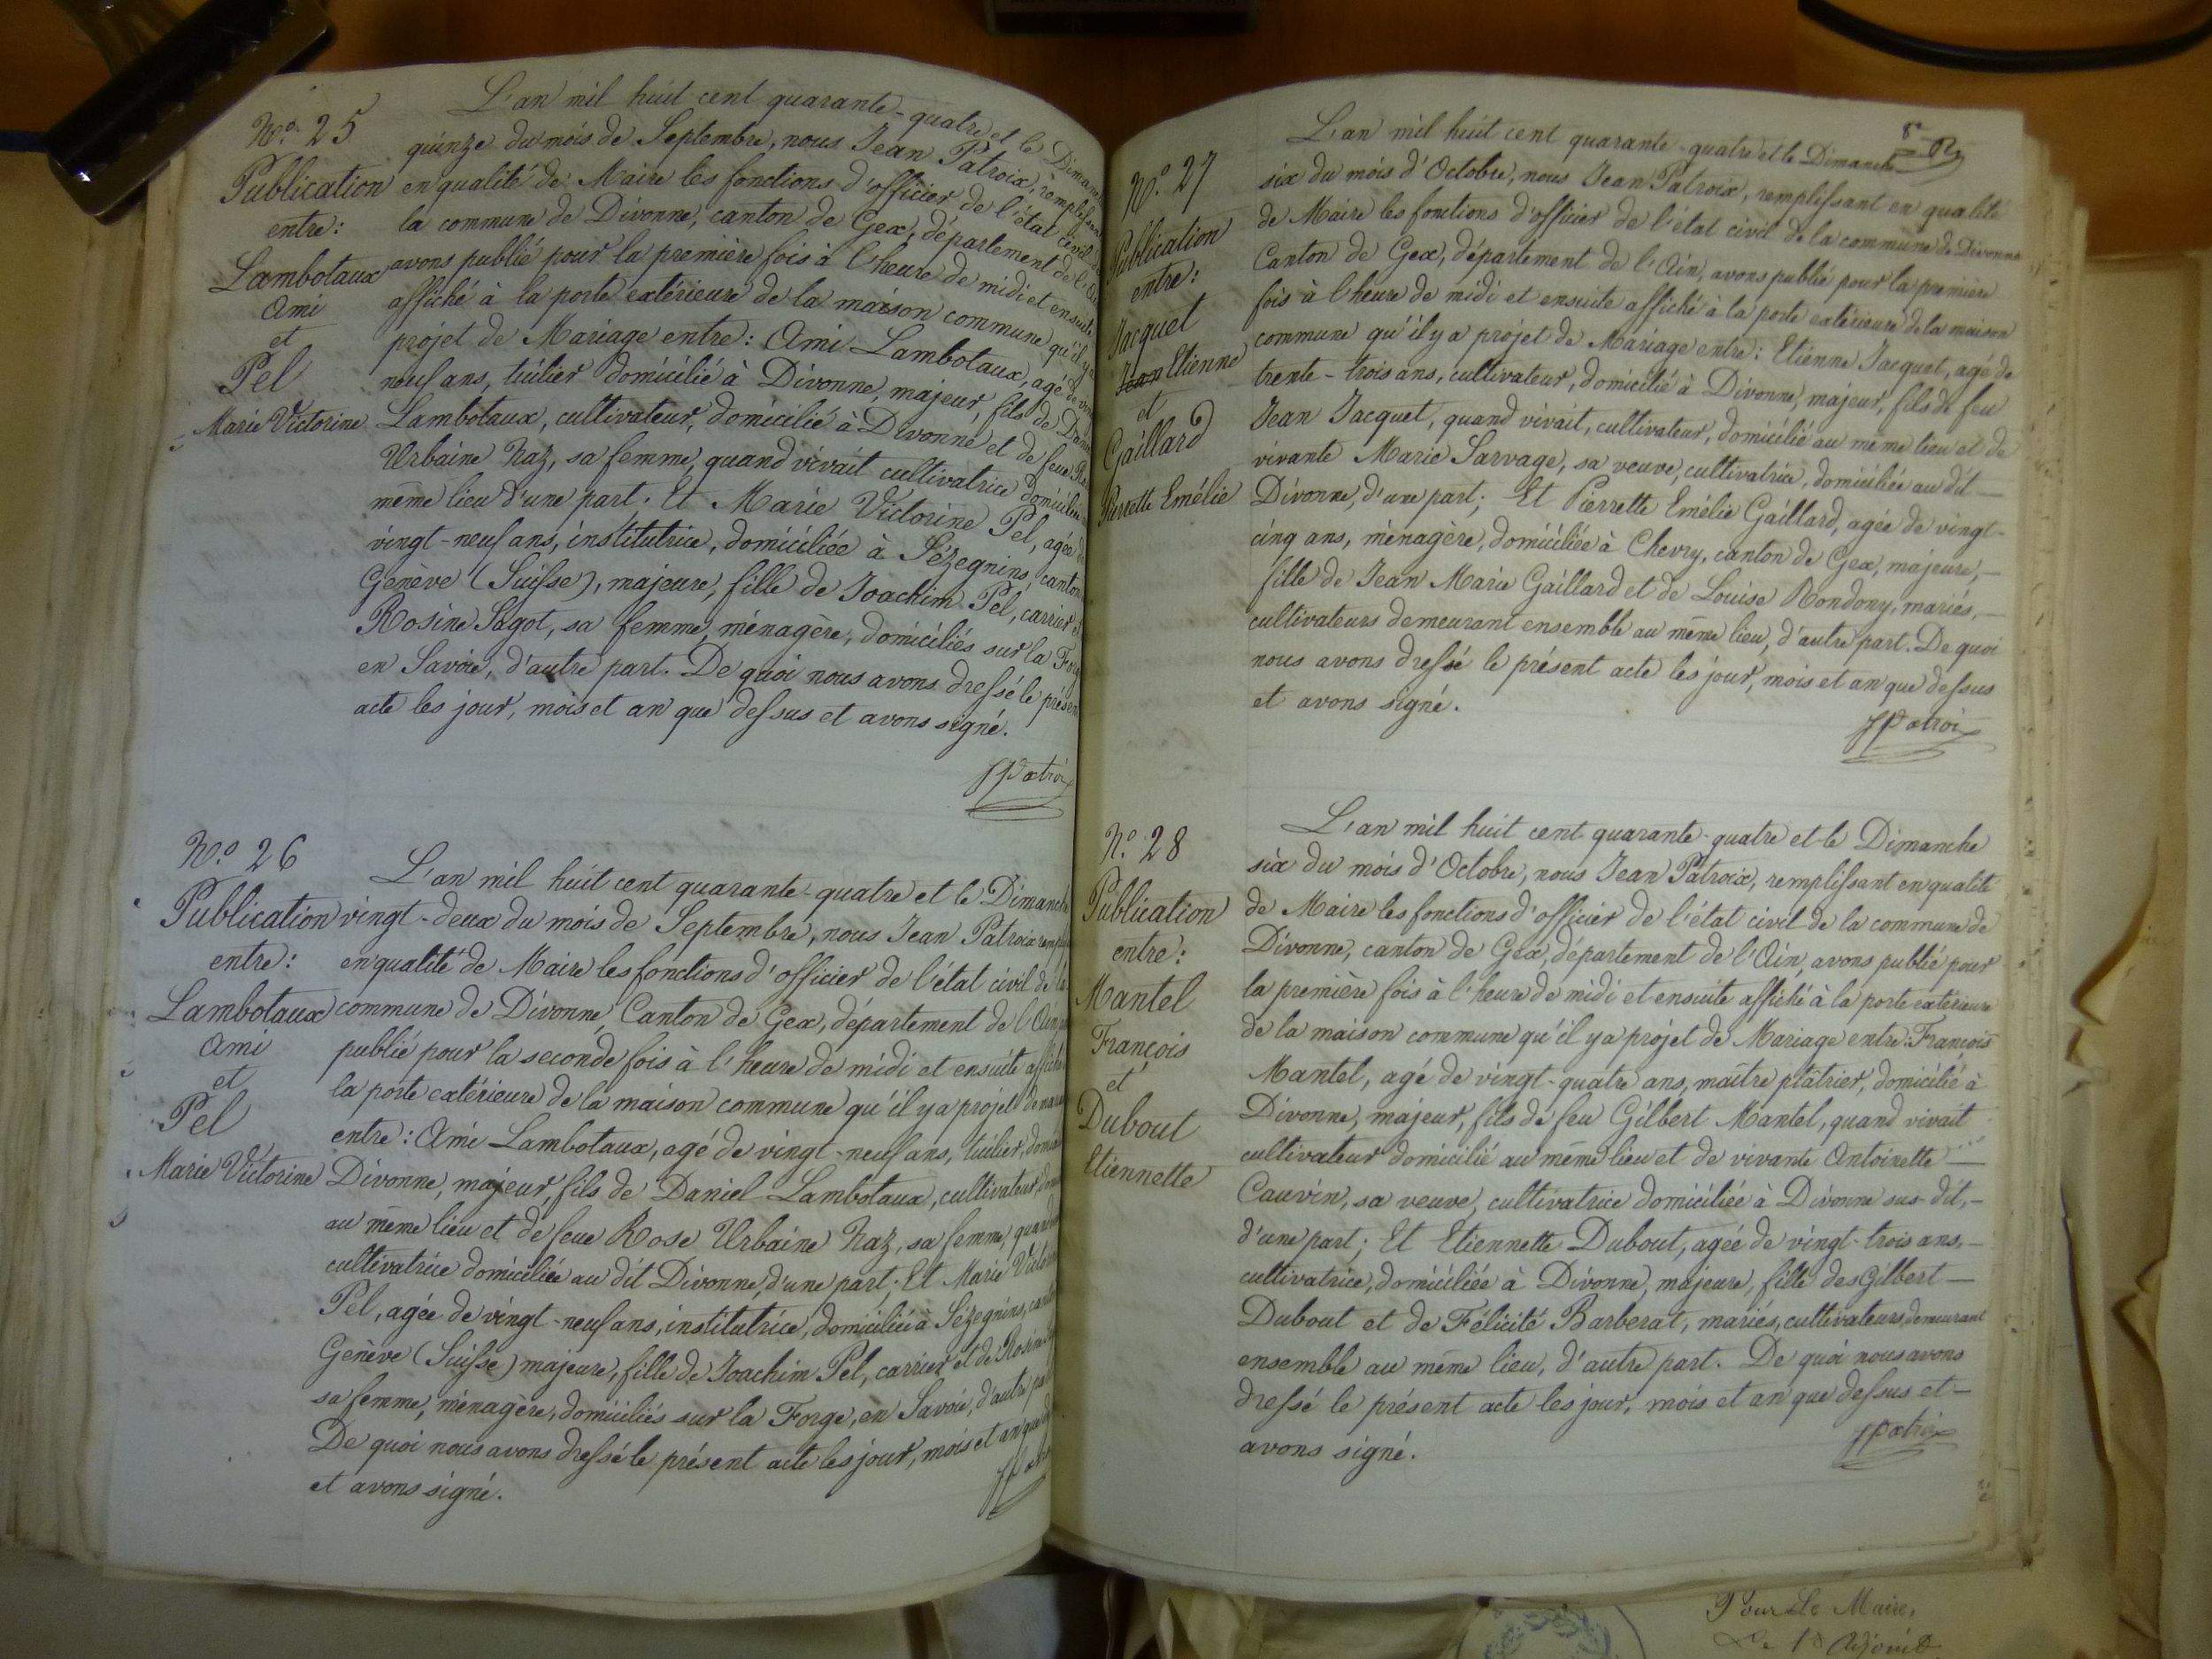 N.o 25
Publication
entre:
Lambotaux
Ami
et
Pel
Marie Victorine
L'an mil huit cent quarante-quatre et le Dimanche
quinze du mois de Septembre, nous Jean Patroix, remplissant
en qualité de Maire les fonctions d'officier de l'état civil de
la commune de Divonne, canton de Gex, département de l'Ain
avons publié pour la première fois à l'heure de midi et ensuite
affiché à la porte extérieure de la maison commune qu'il y a
projet de Mariage entre: Ami Lambotaux, agé de vingt
neuf ans, tuilier domicilié à Divonne, majeur, fils de Daniel
Lambotaux, cultivateur, domicilié à Divonne et de feue Rose
Urbaine Naz, sa femme, quand vivait cultivatrice domiciliée
même lieu d'une part. Et Marie Victorine Pel, agée de
vingt-neuf ans, institutrice, domiciliée à Sézegnins, canton
Genève (Suisse), majeure, fille de Joachim Pel, carrier et
Rosine Sagot, sa femme, ménagère, domiciliés sur la Forge
en Savoie, d'autre part. De quoi nous avons dressé le présent
acte les jour, mois et an que dessus et avons signé.
JPatroix
N.o 26
Publication
entre:
Lambotaux
Ami
et
Pel
Marie Victorine
L'an mil huit cent quarante-quatre et le Dimanche
vingt-deux du mois de Septembre, nous Jean Patroix
en qualité de Maire les fonctions d'officier de l'état civil de la
commune de Divonne, Canton de Gex, département de l'Ain
publié pour la seconde fois à l'heure de midi et ensuite affiché
la porte extérieure de la maison commune qu'il y a projet de
entre: Ami Lambotaux, agé de vingt-neuf ans, tuilier,
Divonne, majeur, fils de Daniel Lambotaux, cultivateur
au même lieu et de feue Rose Urbaine Naz, sa femme, quand
cultivatrice domiciliée au dit Divonne, d'une part; Et Marie
Pel, agée de vingt-neuf ans, institutrice, domiciliée à Sézegnins,
Genève (Suisse) majeure, fille de Joachim Pel, carrier et de Rosine
sa femme, ménagère, domiciliés sur la Forge, en Savoie, d'autre
De quoi nous avons dressé le présent acte les jour, mois et an que
et avons signé.
8
N.o 27
Publication
entre:
Jacquet
Jean Etienne
et
Gaillard
Pierrette Emélie
L'an mil huit cent quarante-quatre et le Dimanche
six du mois d'Octobre, nous Jean Patroix, remplissant en qualité
de Maire les fonctions d'officier de l'état civil de la commune de Divonne
Canton de Gex, département de l'Ain, avons publié pour la première
fois à l'heure de midi et ensuite affiché à la porte extérieure de la maison
commune qu'il y a projet de Mariage entre: Etienne Jacquet, agé de
trente-trois ans, cultivateur, domicilié à Divonne, majeur, fils de feu
Jean Jacquet, quand vivait, cultivateur, domicilié au même lieu et de
vivante Marie Sarvage, sa veuve, cultivatrice, domiciliée au dit
Divonne, d'une part; Et Pierrette Emélie Gaillard, agée de vingt-
cinq ans, ménagère, domiciliée à Chevry, canton de Gex, majeure,
fille de Jean Marie Gaillard et de Louise Rondony, mariés,
cultivateurs demeurant ensemble au même lieu, d'autre part. De quoi
nous avons dressé le présent acte les jour, mois et an que dessus
et avons signé.
JPatroix
N.o 28
Publication
entre:
Mantel
François
et
Dubout
Etiennette
L'an mil huit cent quarante-quatre et le Dimanche
six du mois d'Octobre, nous Jean Patroix, remplissant en qualité
de Maire les fonctions d'officier de l'état civil de la commune de
Divonne, canton de Gex, département de l'Ain, avons publié pour
la première fois à l'heure de midi et ensuite affiché à la porte extérieure
de la maison commune qu'il y a projet de Mariage entre: François
Mantel, agé de vingt-quatre ans, maître plâtrier, domicilié à
Divonne, majeur, fils de feu Gilbert Mantel, quand vivait
cultivateur domicilié au même lieu et de vivante Antoinette
Cauvin, sa veuve, cultivatrice domiciliée à Divonne sus-dit,
d'une part; Et Etiennette Dubout, agée de vingt-trois ans,
cultivatrice, domiciliée à Divonne, majeure, fille des Gilbert
Dubout et de Félicité Barberat, mariés, cultivateurs demeurant
ensemble au même lieu, d'autre part. De quoi nous avons
dressé le présent acte les jour, mois et an que dessus et
avons signé.
JPatroix
Pour Le Maire,
Le 1r Adjoint